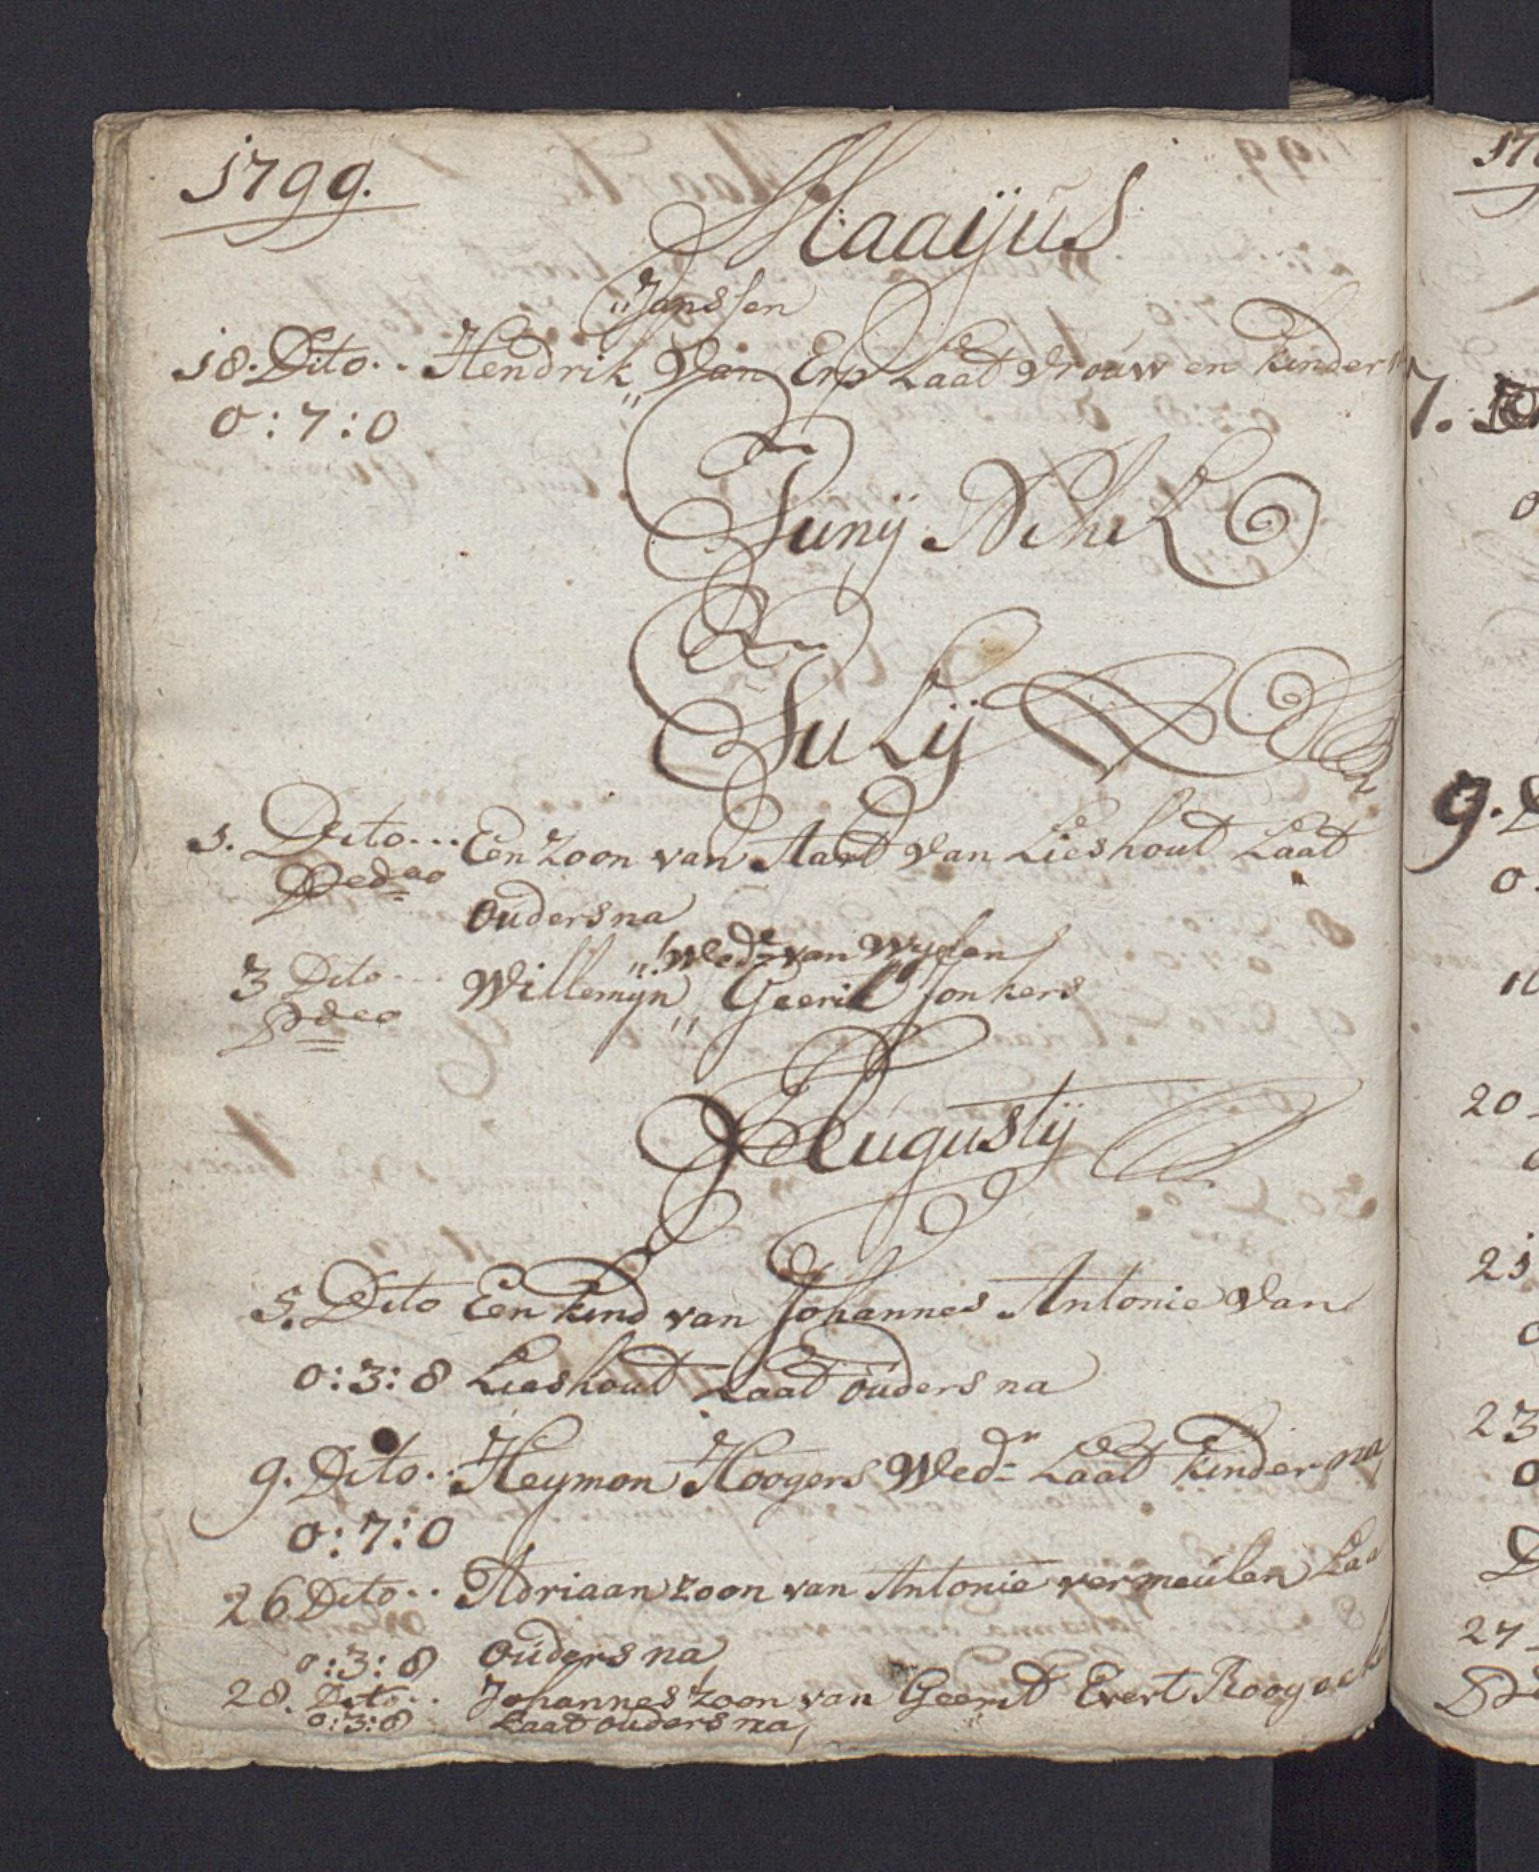 1799.
Maaijus
"Janssen
18. Dito.. Hendrik " Van Erp Laat vrouw en kinder
0:7:0
Junij Nihil
Julij
5. Dito... Een zoon van Aart van Lieshout Laat
Pr deo ouders na
" Wedr van Wijlen
3 Dito.... Willemijn " Geerit Jonkers
P deo
Augustij
5. Dito Een kind van Johannes Antonie van
0:3:8 Lieshout Laat ouders na
9. Dito.. Heymon Hoogers Wedr Laat kinder na
0:7:0
26 Dito.. Adriaan zoon van Antonie vermeulen Laa
0:3:8 ouders na
28. Dito.. Johannes zoon van Geerit Evert
0:3:8 Laat ouders na,
17
7.
0
9. D
0.
20
21
0
23
0
27